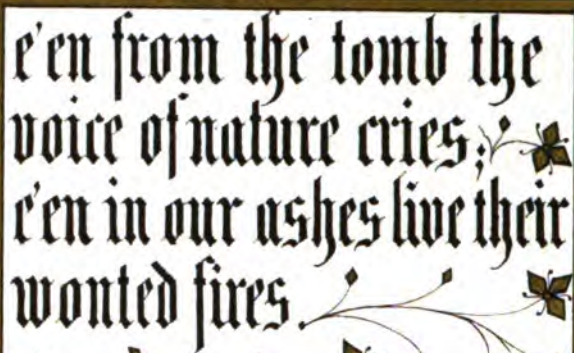 e'en from the tomb the
voice of nature cries;
e'en in our ashes live their
wonted fires.